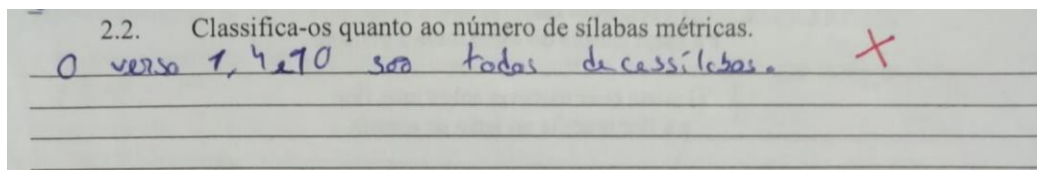 2.2. Classifica-os quanto ao número de sílabas métricas.
O verso 1, 4 e 10 são todos decassílabos.